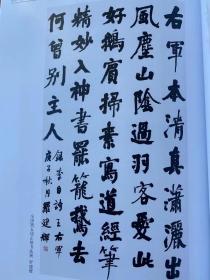 右軍本清真瀟灑出
風塵山陰過羽客愛此
好鵝賓掃素寫道經筆
精妙入神書罷籠鵞去
何曾別主人
錄李白詩王右軍
庚子秋月